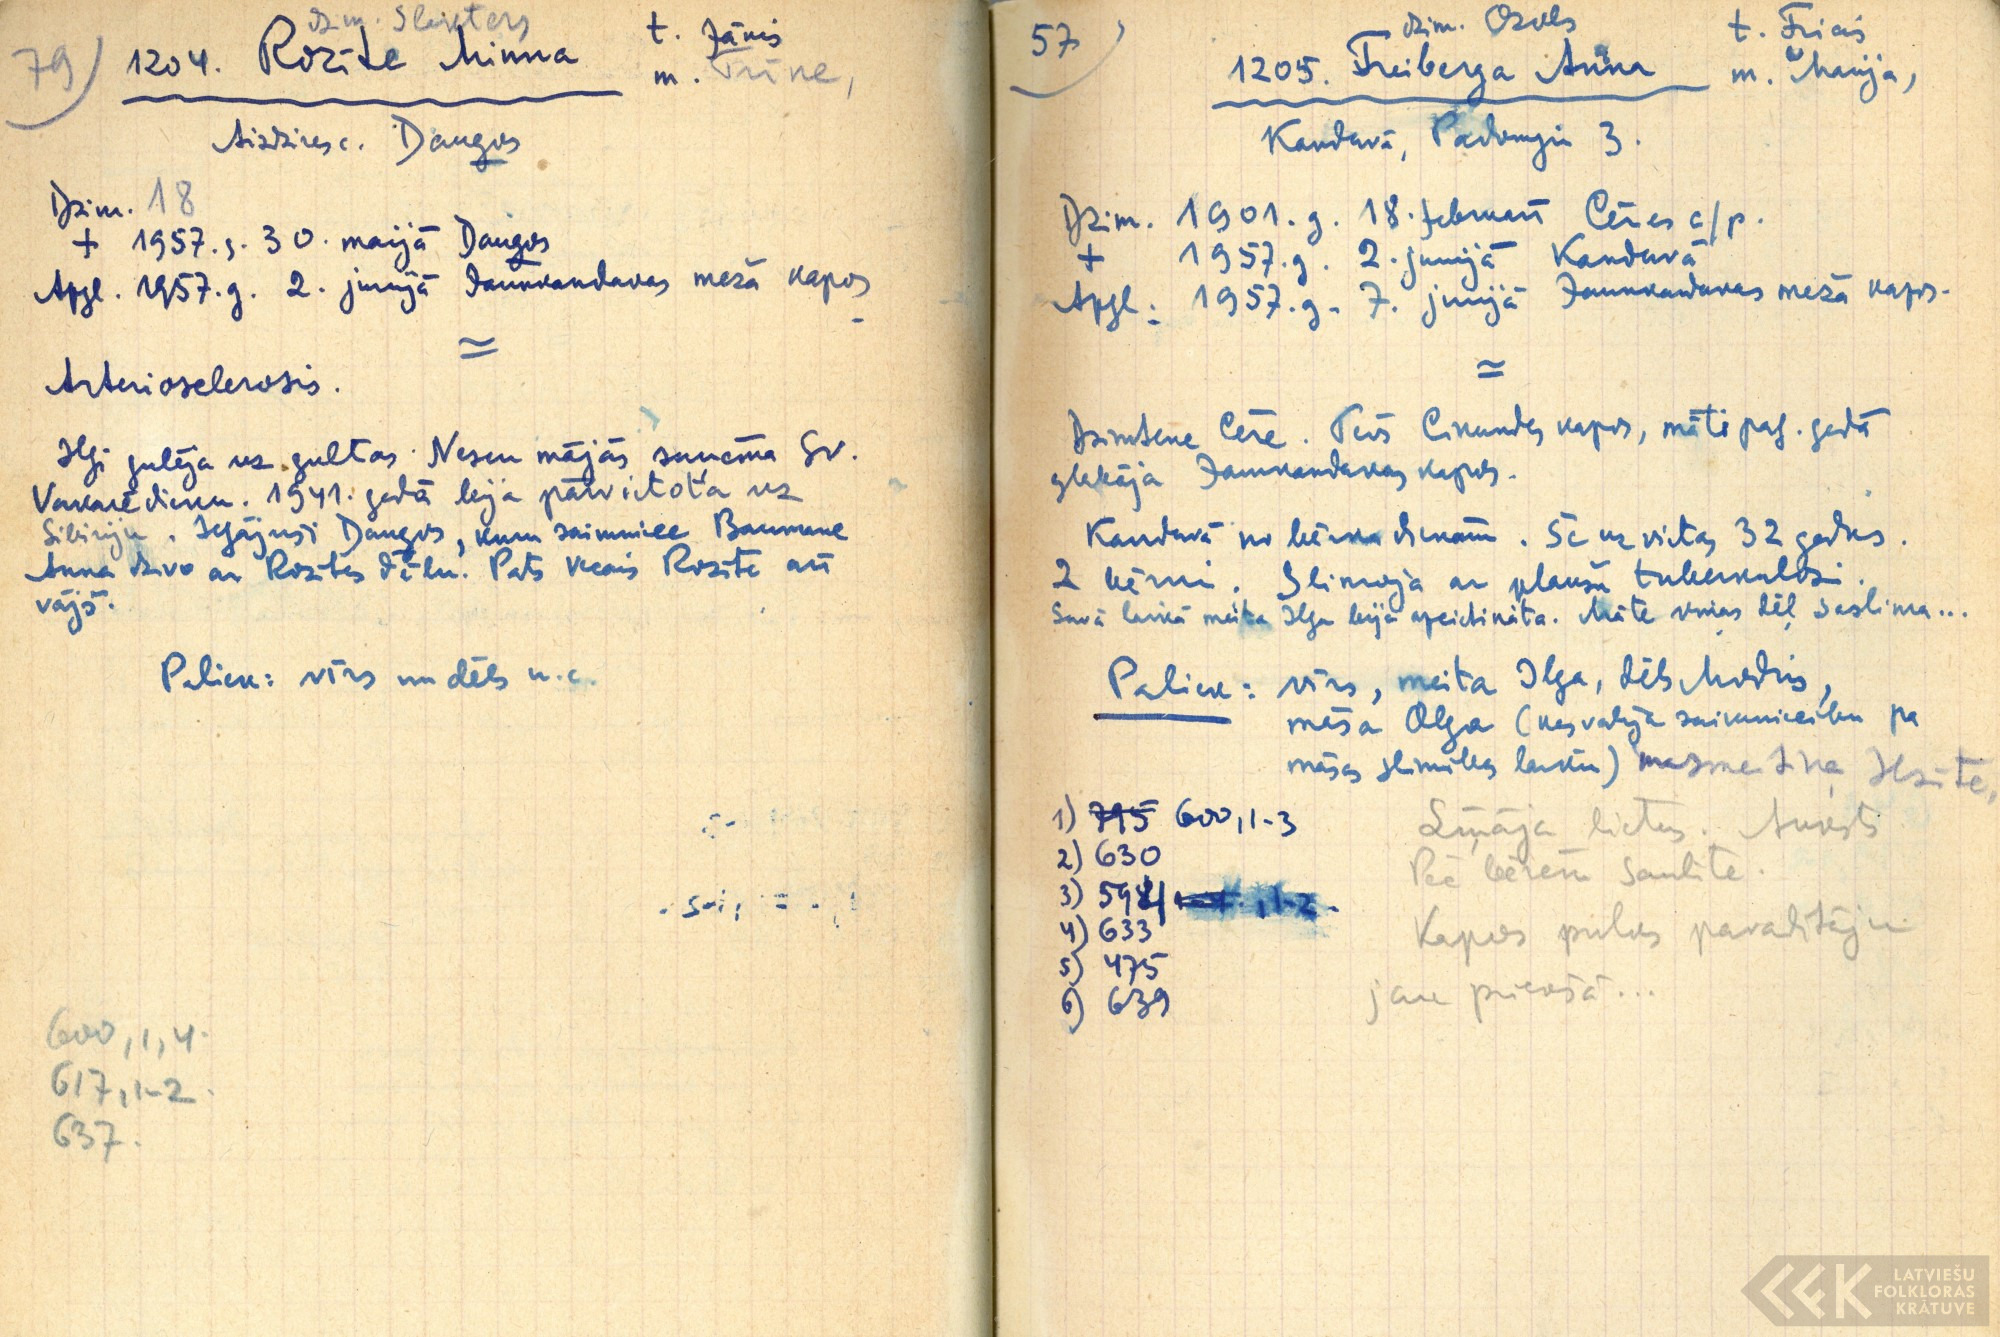 79)
dzim. Sleņģers
1204. Rozīte Minna
t. Jānis
m. Trīne,
Aizdzires c. Daugos
Dzim. 18
+ 1957. g. 30. maijā Daugos
Apgl. 1957. g. 2. jūnijā Jaunkandavas meža kapos
=
Arteriosclerosis.
Ilgi gulēja uz gultas. Nesen mājās saņēma Sv.
Vakarēdienu. 1941. gadā bija pārvietota uz
Sibiriju. Iegājusi Daugos, kuru saimniece Baumane
Anna dzīvo ar Rozītes dēlu. Pats vecais Rozīte arī
vājš.
Paliek: vīrs un dēls u.c.
600, 1, 4.
617, 1-2.
637.
57)
dzim. Ozols
1205. Freiberga Anna
t. Fricis
m. Marija,
Kandavā, Padomju 3.
Dzim. 1901. g. 18. februārī Cēres c/p.
+ 1957. g. 2. jūnijā Kandavā
Apgl. 1957. g. 7. jūnijā Jaunkandavas meža kapos.
=
Dzimtene Cēre. Tēvs kapos, māti pag. gadā
glabāja Jaunkandavas kapos.
Kandavā no bērna dienām. Šē uz vietas 32 gadus.
2 bērni. Slimoja ar plaušu tuberkulozi.
Savā laikā meita Ilga bija apcietināta. Māte viņas dēļ saslima...
Paliek: vīrs, meita Ilga, dēls Modris,
māsa Olga (kas vadīja saimniecību pa
māsas slimības laiku) mazmeitiņa Ilzīte,
1) 795 600, 1-3
2) 630
3) 594 , 1-2.
4) 633
5) 475
6) 639
Līņāja lietus. Auksts
Pēc bērēm saulīte.
Kapos puķes pavadītāju
jau priekšā...
LATVIEŠU
FOLKLORAS
KRĀTUVE